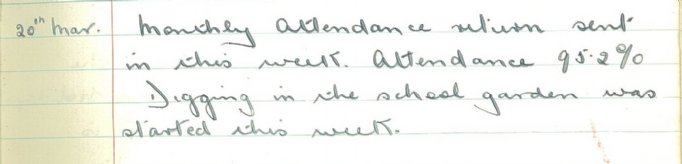 20th Mar. Monthly Attendance return sent
in this week. Attendance 95.2%
Digging in the school garden was
started this week.